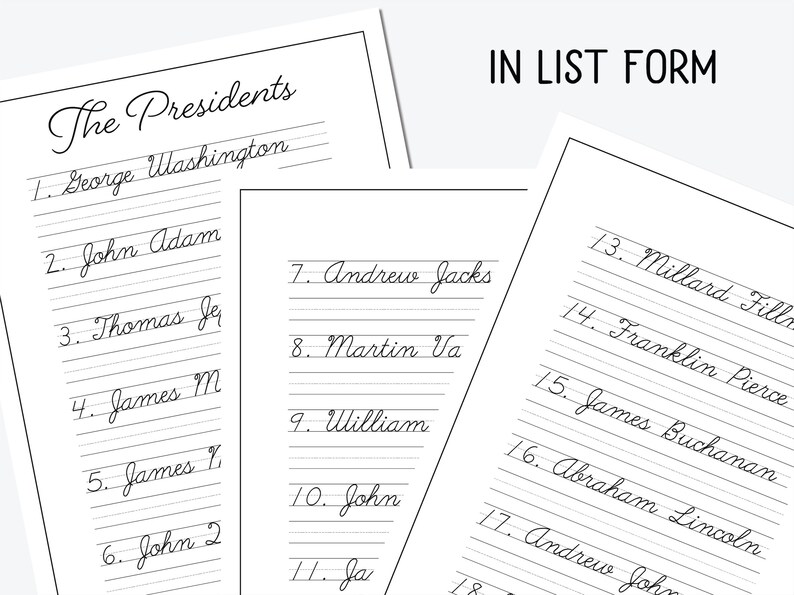 IN LIST FORM
The Presidents
1. George Washington
2. John Adam
3. Thomas Je
4. James M
5. James
6. John
7. Andrew Jacks
8. Martin Va
9. William
10. John
11. Ja
13. Millard Fillm
14. Franklin Pierce
15. James Buchanan
16. Abraham Lincoln
17. Andrew John
18.